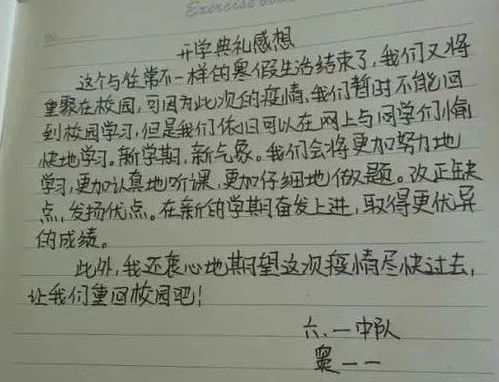 Exercise
开学典礼感想
这个与往常不一样的寒假生活结束了,我们又将
重聚在校园,可因为此次的疫情,我们暂时不能回
到校园学习,但是我们依旧可以在网上与同学们愉
快地学习。新学期,新气象。我们会将更加努力地
学习,更加认真地听课,更加仔细地做题。改正缺
点,发扬优点。在新的学期奋发上进,取得更优异
的成绩。
此外,我还衷心地期望这次疫情尽快过去,
让我们重回校园吧!
六.一中队
一一